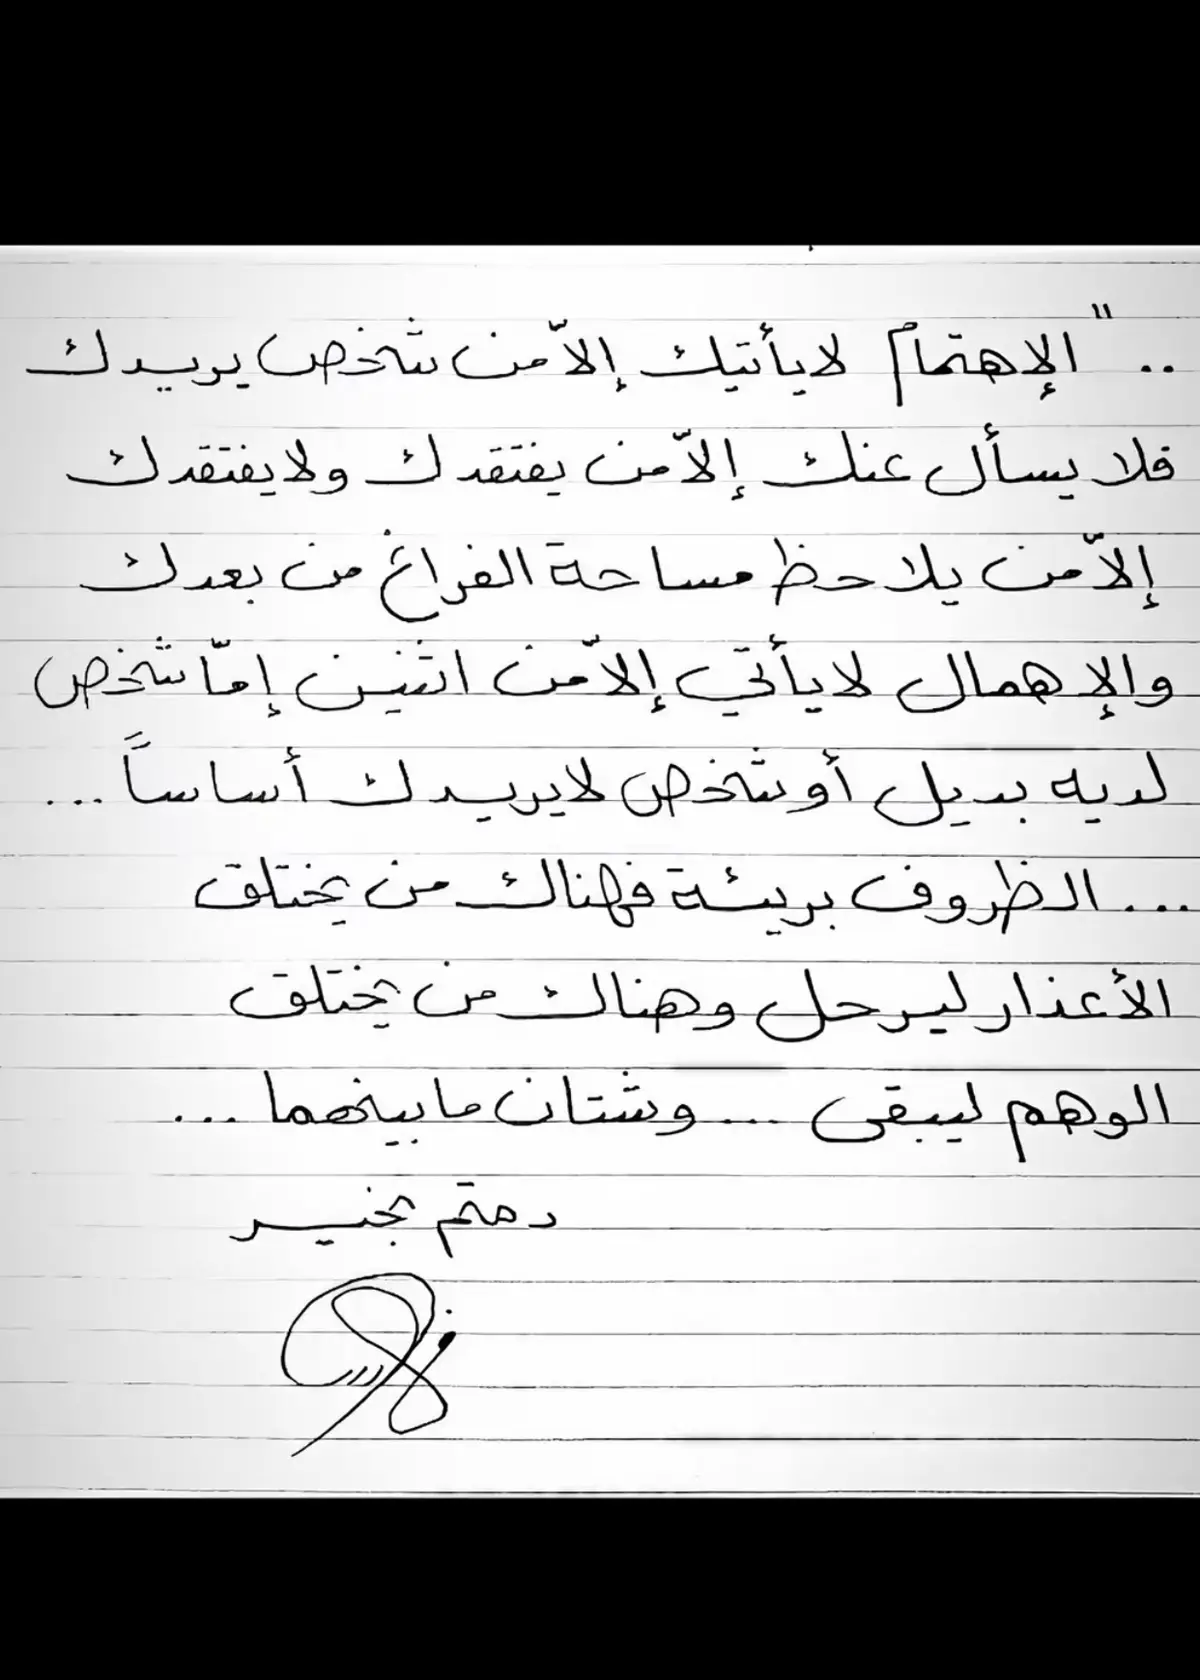 .. "الإهتمام لا يأتيك إلاّ من شخص يريدك
فلا يسأل عنك إلاّ من يفتقدك ولا يفتقدك
إلاّ من يلاحظ مساحة الفراغ من بعدك
والإهمال لا يأتي إلاّ من اثنين إمّا شخص
لديه بديل أو شخص لا يريدك أساساً ...
... الظروف بريئة فهناك من يختلق
الأعذار ليرحل وهناك من يختلق
الوهم ليبقى ... وشتان ما بينهما ...
دمتم بخير